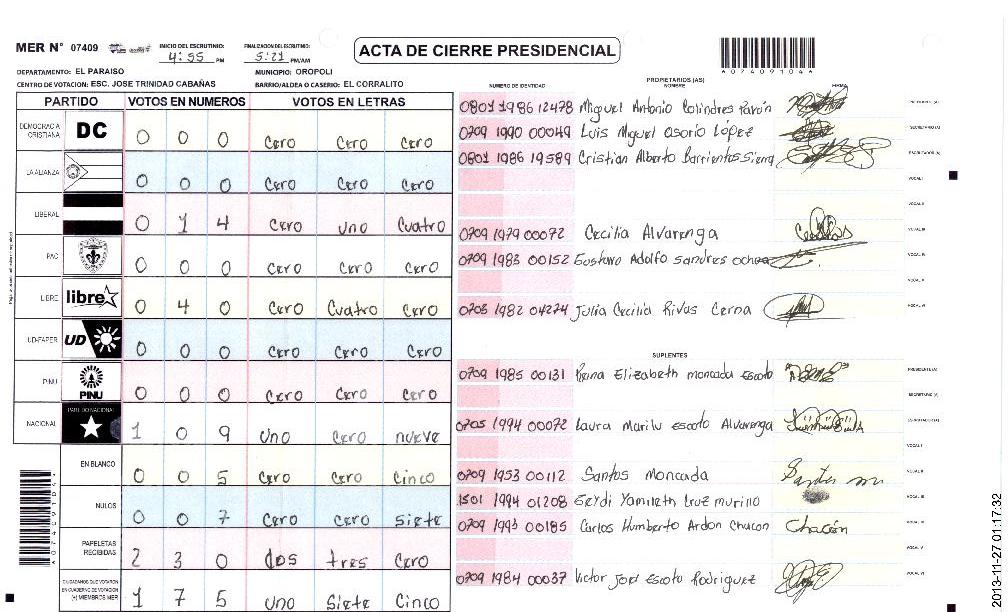 MER N° 07409 INICIO DEL ESCRUTINIO: 4:55 PM FINALIZACION DEL ESCRUTINIO: 5:21 PM/AM
ACTA DE CIERRE PRESIDENCIAL
A074091046
DEPARTAMENTO: EL PARAISO MUNICIPIO: OROPOLI
CENTRO DE VOTACION: ESC. JOSE TRINIDAD CABAÑAS BARRIO/ALDEA O CASERIO: EL CORRALITO
PARTIDO VOTOS EN NUMEROS VOTOS EN LETRAS
DEMOCRACIA CRISTIANA DC 0 0 0 Cero Cero Cero
LA ALIANZA 0 0 0 Cero Cero Cero
LIBERAL 0 1 4 Cero uno Cuatro
PAC 0 0 0 Cero Cero Cero
LIBRE libre 0 4 0 Cero Cuatro Cero
UD-FAPER UD 0 0 0 Cero Cero Cero
PINU PINU 0 0 0 Cero Cero Cero
NACIONAL PARTIDO NACIONAL 1 0 9 uno Cero nueve
EN BLANCO 0 0 5 Cero Cero Cinco
NULOS 0 0 7 Cero Cero Siete
PAPELETAS RECIBIDAS 2 3 0 dos tres Cero
CIUDADANOS QUE VOTARON EN CUADERNO DE VOTACION (+) MIEMBROS MER 1 7 5 uno Siete Cinco
PROPIETARIOS (AS)
NUMERO DE IDENTIDAD NOMBRE FIRMA
0801 1986 12478 Miguel Antonio Colindres Pavón
0709 1990 00049 Luis Miguel osorio López
0801 1986 19589 Cristian Alberto Barrientos Sierra
VOCAL I
VOCAL II
0709 1979 00072 Cecilia Alvarenga VOCAL III
0709 1983 00152 Gustavo Adolfo sandres ochoa VOCAL IV
VOCAL V
0703 1982 04274 Julia Cecilia Rivas Cerna VOCAL VI
SUPLENTES
0709 1985 00131 Reina Elizabeth moncada Escoto PRESIDENTE (A)
SECRETARIO (A)
0705 1994 00072 Laura Marilu escoto Alvarenga ESCRUTADOR (A)
VOCAL I
0709 1953 00112 Santos Moncada VOCAL II
1501 1994 01208 Yamileth Cruz murino VOCAL III
0709 1993 00185 Carlos Humberto Ardon Chacon Chacón VOCAL IV
VOCAL V
0709 1984 00037 Victor José Escoto Rodriguez VOCAL VI
2013-11-27 01:17:32